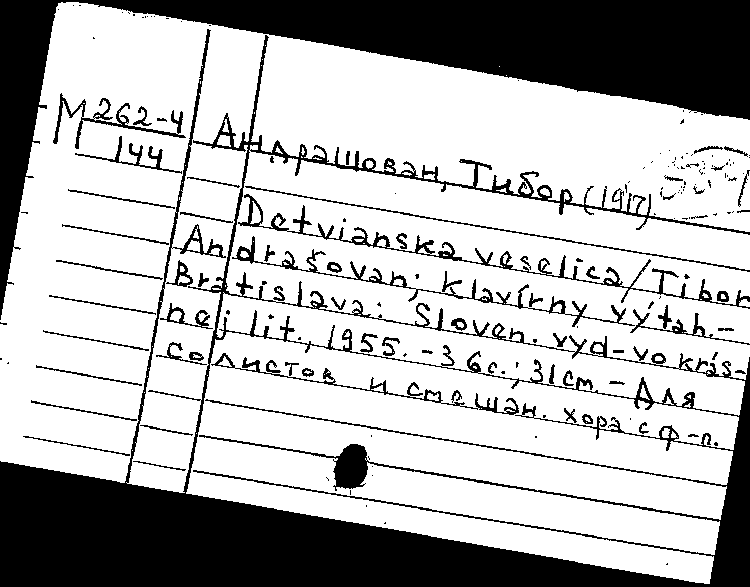 М 262-4
144
Андрашован, Тибор (1917)
Detvianska veselica / Tibor
Andrašovan; Klavírny výťah.-
Bratislava: Sloven. vyd-vo krás-
nej lit., 1955. - 36 с.; 31 см. - Для
солистов и смешан. хора с ф-п.